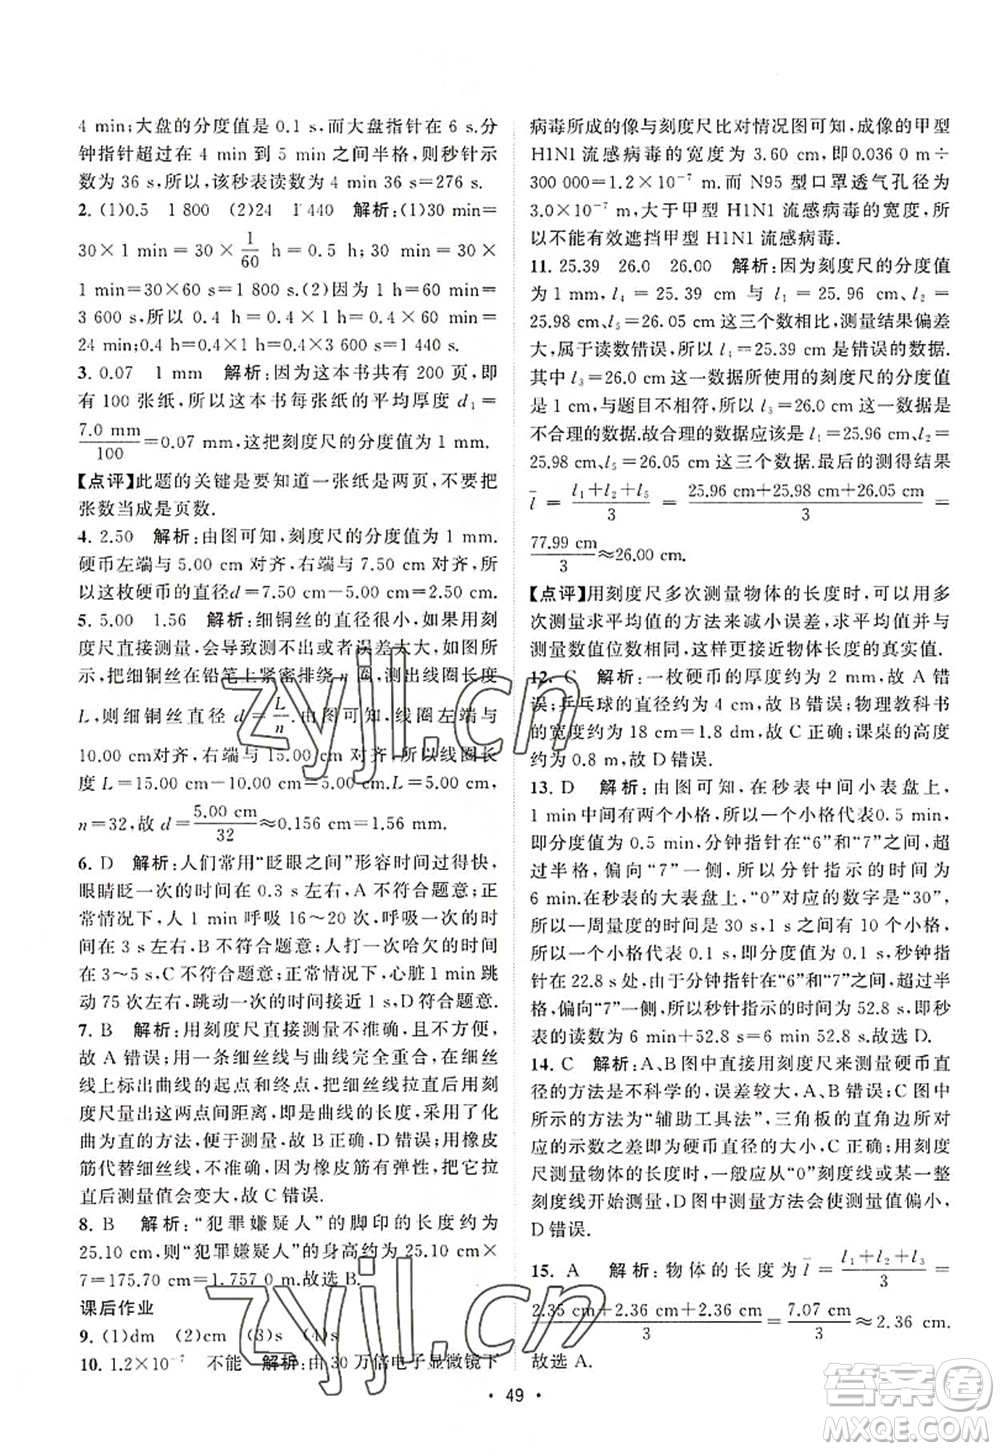 4 min;大盘的分度值是 0.1 s,大盘指针在 6 s.分
钟指针超过在 4 min 到 5 min 之间半格,则秒针示
数为 36 s,所以,该秒表读数为 4 min 36 s=276 s.
2. (1)0.5 1 800 (2)24 1 440 解析:(1)30 min=
30×1 min=30×1/60 h=0.5 h;30 min=30×
1 min=30×60 s=1 800 s.(2)因为 1 h=60 min=
3 600 s,所以 0.4 h=0.4×1 h=0.4×60 min=
24 min;0.4 h=0.4×1 h=0.4×3 600 s=1 440 s.
3. 0.07 1 mm 解析:因为这本书共有 200 页,即
有 100 张纸,所以这本书每张纸的平均厚度 d₁=
7.0 mm/100=0.07 mm,这把刻度尺的分度值为 1 mm.
【点评】此题的关键是要知道一张纸是两页,不要把
张数当成是页数.
4. 2.50 解析:由图可知,刻度尺的分度值为 1 mm.
硬币左端与 5.00 cm 对齐,右端与 7.50 cm 对齐,所
以这枚硬币的直径d=7.50 cm-5.00 cm=2.50 cm.
5. 5.00 1.56 解析:细铜丝的直径很小,如果用刻
度尺直接测量,会导致测不出或者误差太大,如图所
示,将细铜丝在铅笔上紧密排绕 n 圈,测出线圈长度
L,则细铜丝直径 d=L/n.由图可知,线圈左端与
10.00 cm对齐,右端与 15.00 cm对齐,所以线圈长
度 L=15.00 cm-10.00 cm=5.00 cm.线圈匝数
n=32,故 d=5.00 cm/32≈0.156 cm=1.56 mm.
6. D 解析:人们常用“眨眼之间”形容时间过得快,
眼睛眨一次的时间在 0.3 s 左右,A 不符合题意;正
常情况下,人 1 min 呼吸 16～20 次,呼吸一次的时
间在 3 s 左右,B 不符合题意;人打一次哈欠的时间
在 3～5 s,C 不符合题意;人体平静时,心脏 1 min 跳
动 75 次左右,跳动一次的时间接近 1 s,D 符合题意.
7. B 解析:用刻度尺直接测量不准确,也不方便,
故 A 错误;用细丝线与曲线完全重合,在细丝线上
标出起点和终点,然后把细丝线拉直后再用刻
度尺量出两点间距离,即是曲线的长度,采用了化
曲为直的方法,便于测量,故 B 正确,D 错误;用橡皮
筋代替细丝线,虽能拉直,但橡皮筋有弹性,且拉
直后测量值会变大,故 C 错误.
8. B 解析:“犯罪嫌疑人”的脚印的长度约为
25.10 cm,则“犯罪嫌疑人”的身高约为 25.10 cm×
7=175.70 cm=1.757 0 m.故选 B.
课后作业
9. (1)dm (2)cm (3)s (4)s
10. 1.2×10⁻⁷ 不能 解析:由 30 万倍电子显微镜下
病毒所成的像与刻度尺比对情况图可知,成像的甲型
H1N1 流感病毒的宽度为 3.60 cm,即0.036 0 m÷
300 000=1.2×10⁻⁷ m.而 N95 型口罩透气孔径为
3.0×10⁻⁷ m,大于甲型 H1N1 流感病毒的宽度,所
以不能有效遮挡甲型 H1N1 流感病毒.
11. 25.39 26.0 26.00 解析:因为刻度尺的分度值
为 1 mm,l₄=25.39 cm 与 l₁=25.96 cm、l₂=
25.98 cm、l₅=26.05 cm 这三个数相比,测量结果偏差
大,属于读数错误,所以 l₄=25.39 cm 是错误的数据.
其中 l₃=26.0 cm 这个数据所使用的刻度尺的分度值
是 1 cm,与题目不相符,所以 l₃=26.0 cm 这个数据是
不合理的数据.故合理的数据应该是 l₁=25.96 cm、l₂=
25.98 cm、l₅=26.05 cm 这三个数据.最后的测得结果
l̅=(l₁+l₂+l₅)/3=(25.96 cm+25.98 cm+26.05 cm)/3=
77.99 cm/3≈26.00 cm.
【点评】用刻度尺多次测量物体的长度时,可以采用多
次测量求平均值的方法来减小误差,求平均值并与
测量数值位数相同,这样更接近物体长度的真实值.
12. C 解析:一枚硬币的厚度约为 2 mm,故 A 错
误;乒乓球的直径约为 4 cm,故 B 错误;物理教科书
的宽度约为 18 cm=1.8 dm,故 C 正确;课桌的高度
约为 0.8 m,故 D 错误.
13. D 解析:由图可知,在秒表中间小表盘上,
1 min中间有两个小格,所以一个小格代表0.5 min,
即分度值为 0.5 min,分钟指针在“6”和“7”之间,
且偏向“7”一侧,所以分钟指针所指的时间为
6 min.在秒表的大表盘上,“0”对应的数字是“30”,
0～1 s 所用刻度的时间是 1 s,中间有 10 个小格,所
以一个小格代表0.1 s,即分度值为 0.1 s,秒钟指
针在 22.8 s 处,由于分钟指针在“6”和“7”之间,偏
并且偏向“7”一侧,所以秒针指示的时间为 52.8 s,即秒
表的读数为 6 min+52.8 s=6 min 52.8 s.故选 D.
14. C 解析:A、B 图中直接用刻度尺来测量硬币直
径的方法是不科学的,误差较大,A、B 错误;C 图中
所示的方法为“辅助工具法”,三角板的直角边所对
应的示数之差即为硬币直径的大小,C 正确;用刻度
尺测量物体的长度时,一般应该从“0”刻度线或某一完整
刻度线开始测量,D 图中测量方法会使测量值偏小,
D 错误.
15. A 解析:物体的长度为 l̅=(l₁+l₂+l₃)/3=
(2.35 cm+2.36 cm+2.36 cm)/3=7.07 cm/3≈2.36 cm.
故选 A.
• 49 •
zyjl.cn
zyjl.cn
答案圈
MXQE.COM